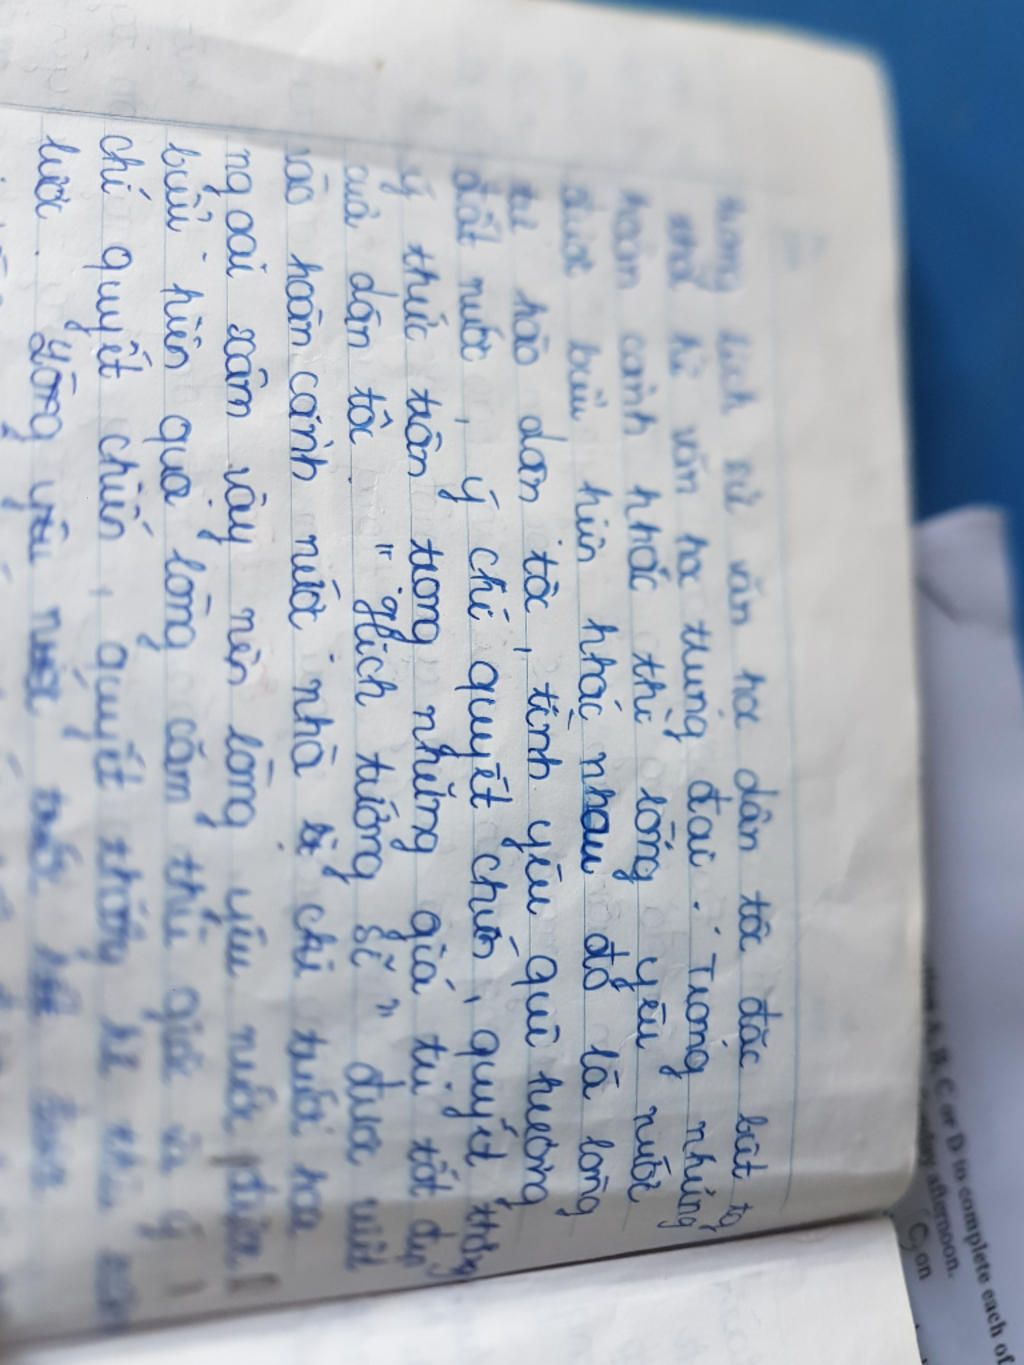 trong lịch sử văn học dân tộc đặc biệt là
thời kì văn học trung đại. Trong những
hoàn cảnh khác thì lòng yêu nước
được biểu hiện khác nhau đó là lòng
tự hào dân tộc, tình yêu quê hương
đất nước, ý chí quyết chiến, quyết thắng
ý thức trân trọng những giá trị tốt đẹp
của dân tộc. "Hịch tướng sĩ" được viết
vào hoàn cảnh nước nhà bị chỉ trước họa
ngoại xâm vậy nên lòng yêu nước được
biểu hiện qua lòng căm thù giặc và ý
chí quyết chiến, quyết thắng kẻ thù xâm
lược. Lòng yêu nước
mark A, B, C or D to complete each of
day afternoon.
C, on